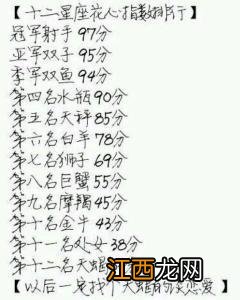 【十二星座花心指数排行】
冠军射手97分
亚军双子95分
季军双鱼94分
第四名水瓶90分
第五名天秤85分
第六名白羊78分
第七名狮子69分
第八名巨蟹55分
第九名摩羯45分
第十名金牛43分
第十一名处女38分
第十二名天蝎
【以后一定找个天蝎的谈恋爱】
江西龙网